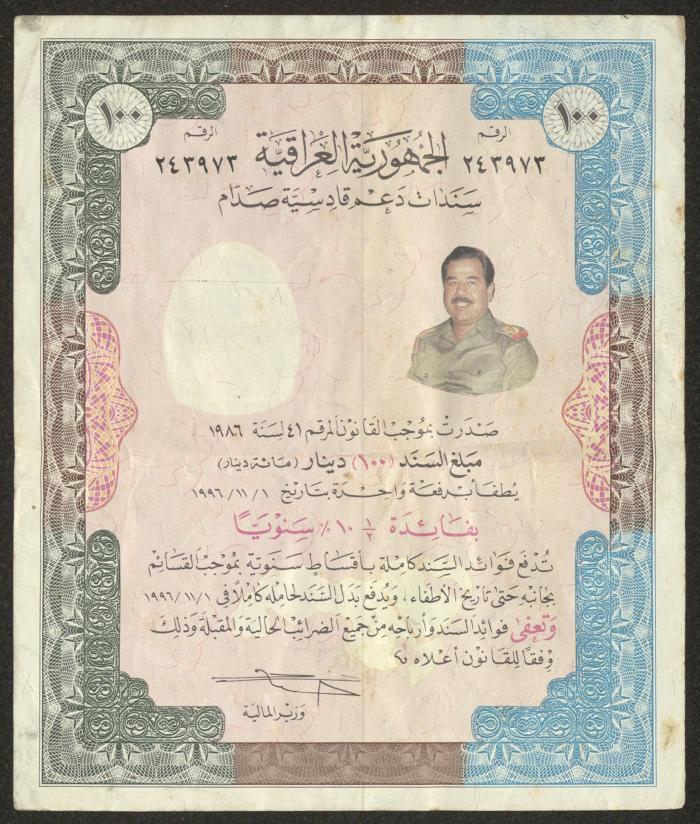 ١٠٠ ١٠٠
الرقم الرقم
٢٤٣٩٧٣ الجمهورية العراقية ٢٤٣٩٧٣
سندات دعم قادسية صدام
صدرت بموجب القانون المرقم ٤١ لسنة ١٩٨٦
مبلغ السند (١٠٠) دينار (مائة دينار)
يطفأ بدفعة واحدة بتاريخ ١٩٩٦/١١/١
بفائدة ١/٢ ١٠٪ سنوياً
تدفع فوائد السند كاملة بأقساط سنوية بموجب القسائم
بجانبه حتى تاريخ الأطفاء، ويدفع بدل السند لحامله كاملاً في ١٩٩٦/١١/١
وتعفى فوائد السند وأرباحه من جميع الضرائب الحالية والمقبلة وذلك
وفقاً للقانون أعلاه
وزير المالية